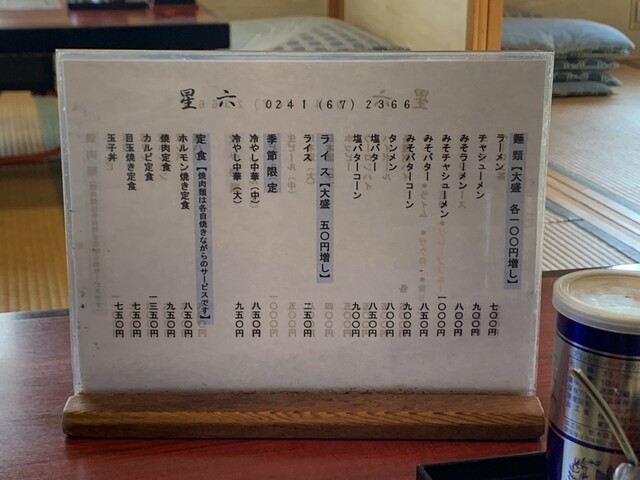 星 六 0241 (67) 2366
麺類【大盛 各一〇〇円増し】
ラーメン 七〇〇円
チャシューメン 九〇〇円
みそラーメン 八〇〇円
みそチャシューメン 一〇〇〇円
みそバター 八五〇円
みそバターコーン 九〇〇円
タンメン 八〇〇円
塩バター 八五〇円
塩バターコーン 九〇〇円
ライス【大盛 五〇円増し】
ライス 二五〇円
季節限定
冷やし中華(中) 八五〇円
冷やし中華(大) 九五〇円
定食【焼肉類は各自焼きながらのサービスです】
ホルモン焼き定食 八五〇円
焼肉定食 九五〇円
カルビ定食 一三五〇円
目玉焼き定食 七五〇円
玉子丼 七五〇円